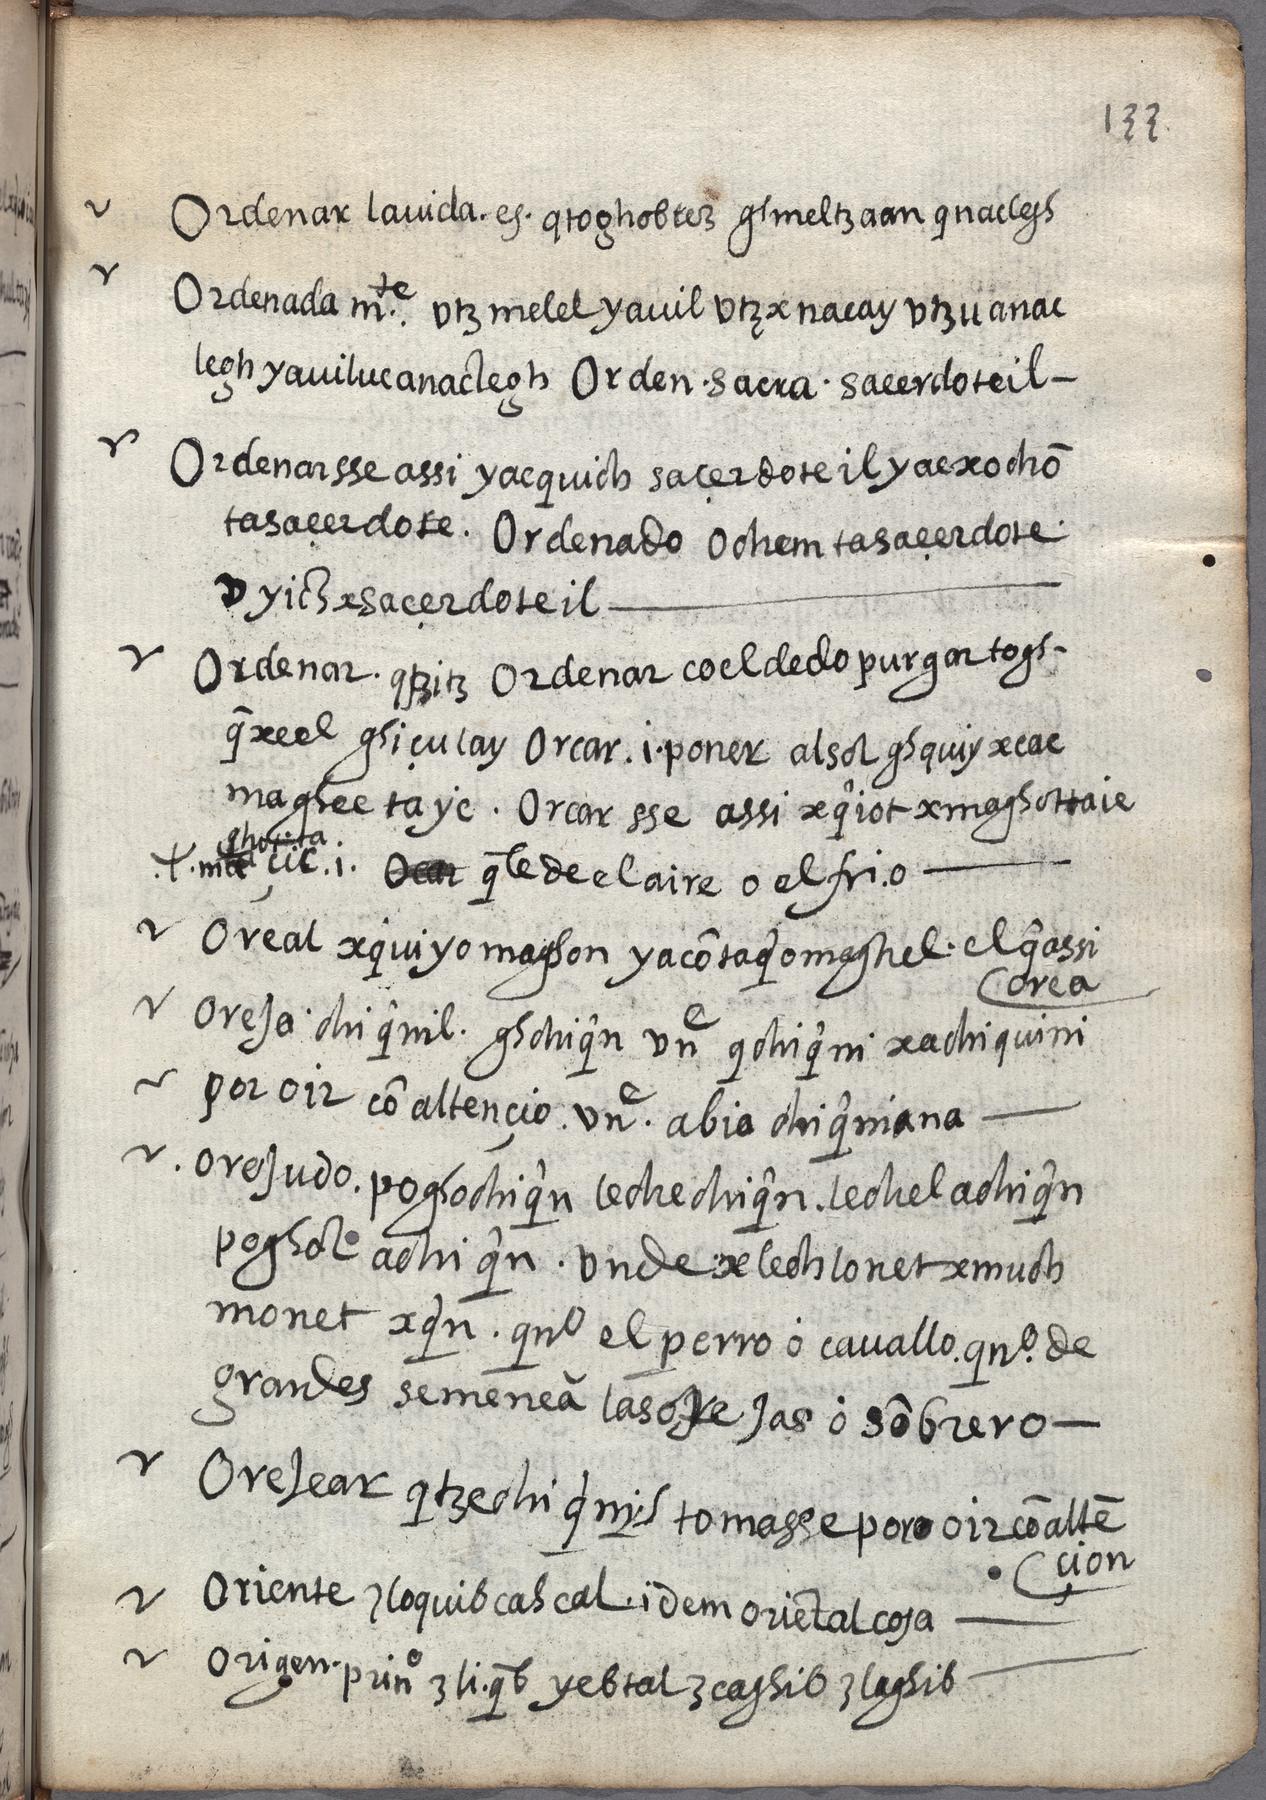 133
Ordenar lauida. es. qtoghobtez ghmeltzaan qnaclegh
Ordenada m.te vtz melel yauil vtz x nacay vtz uanac
legh yauilucanaclegh Orden. sacra. sacerdoteil—
Ordenarsse assi yacquich saçerdoteil yacxochō
tasaçerdote. Ordenado ochem tasaçerdote.
vyich xsaçerdoteil
Ordenar. qtzitz Ordenar cō el dedo purgar togh-
q̄xeel ghiçulay Orcar. i. poner al sol ghquiy xcac
maghee tayc. Orcar sse assi xq̂iot xmaghottaie
ghocita
çic. i. q̄ le de el aire o el frio
Oreal xq̂uiyomaghon yacōtaq̂omaghel. el q̂ assi
orea
oreja chiq̂nil. ghchiq̂n vnē qchiq̂ni xachiquini
por oir cō altençio. vnē. abia chiq̂niana
orejudo. poghochiq̂n lechechiq̂n. lechel achiq̂n
poghol achiq̂n. vnde xlechlonet xmuch
monet xq̂n. qnº el perro o cauallo. qnº. de
grandes semeneā las orejas o sōbrero—
Orejear qtzechiq̂nigh tomasse poro oir cō altē
cion
Oriente zloquib cahcal. idem oriētal cosa
origen. prinº zli. q̄b yebtal zcaghib zlaghib